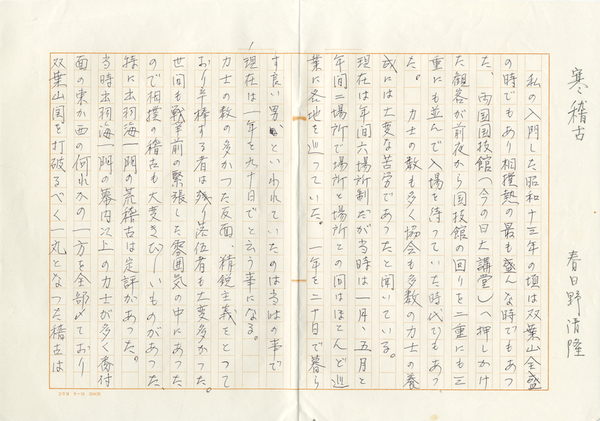 寒稽古
春日野清隆
私の入門した昭和十三年の頃は双葉山全盛
の時でもあり相撲熱の最も盛んな時でもあっ
た、両国国技館（今の日大講堂）へ押しかけ
た観客が前夜から国技館の回りを二重にも三
重にも並んで入場を待っていた時代でもあっ
た。力士の数も多く協会も多数の力士の養
成には大変な苦労であったと聞いている。
現在は年間六場所制だが当時は一月、五月と
年間二場所で場所と場所との間はほとんど巡
業に各地を巡っていた。一年を二十日で暮ら
す良い男といわれていたのは当時の事で
現在は一年を九十日でと云う事になる。
力士の数の多かった反面、精鋭主義をとって
おり辛棒する者は残り落伍者も大変多かった。
世間も戦争前の緊張した雰囲気の中にあった
ので相撲の稽古も大変きびしいものがあった、
特に出羽海一門の荒稽古は定評があった。
当時出羽海一門の幕内以上の力士が多く番付
面の東か西の何れかの一方を全部占めており
双葉山関を打破るべく一丸となった稽古は